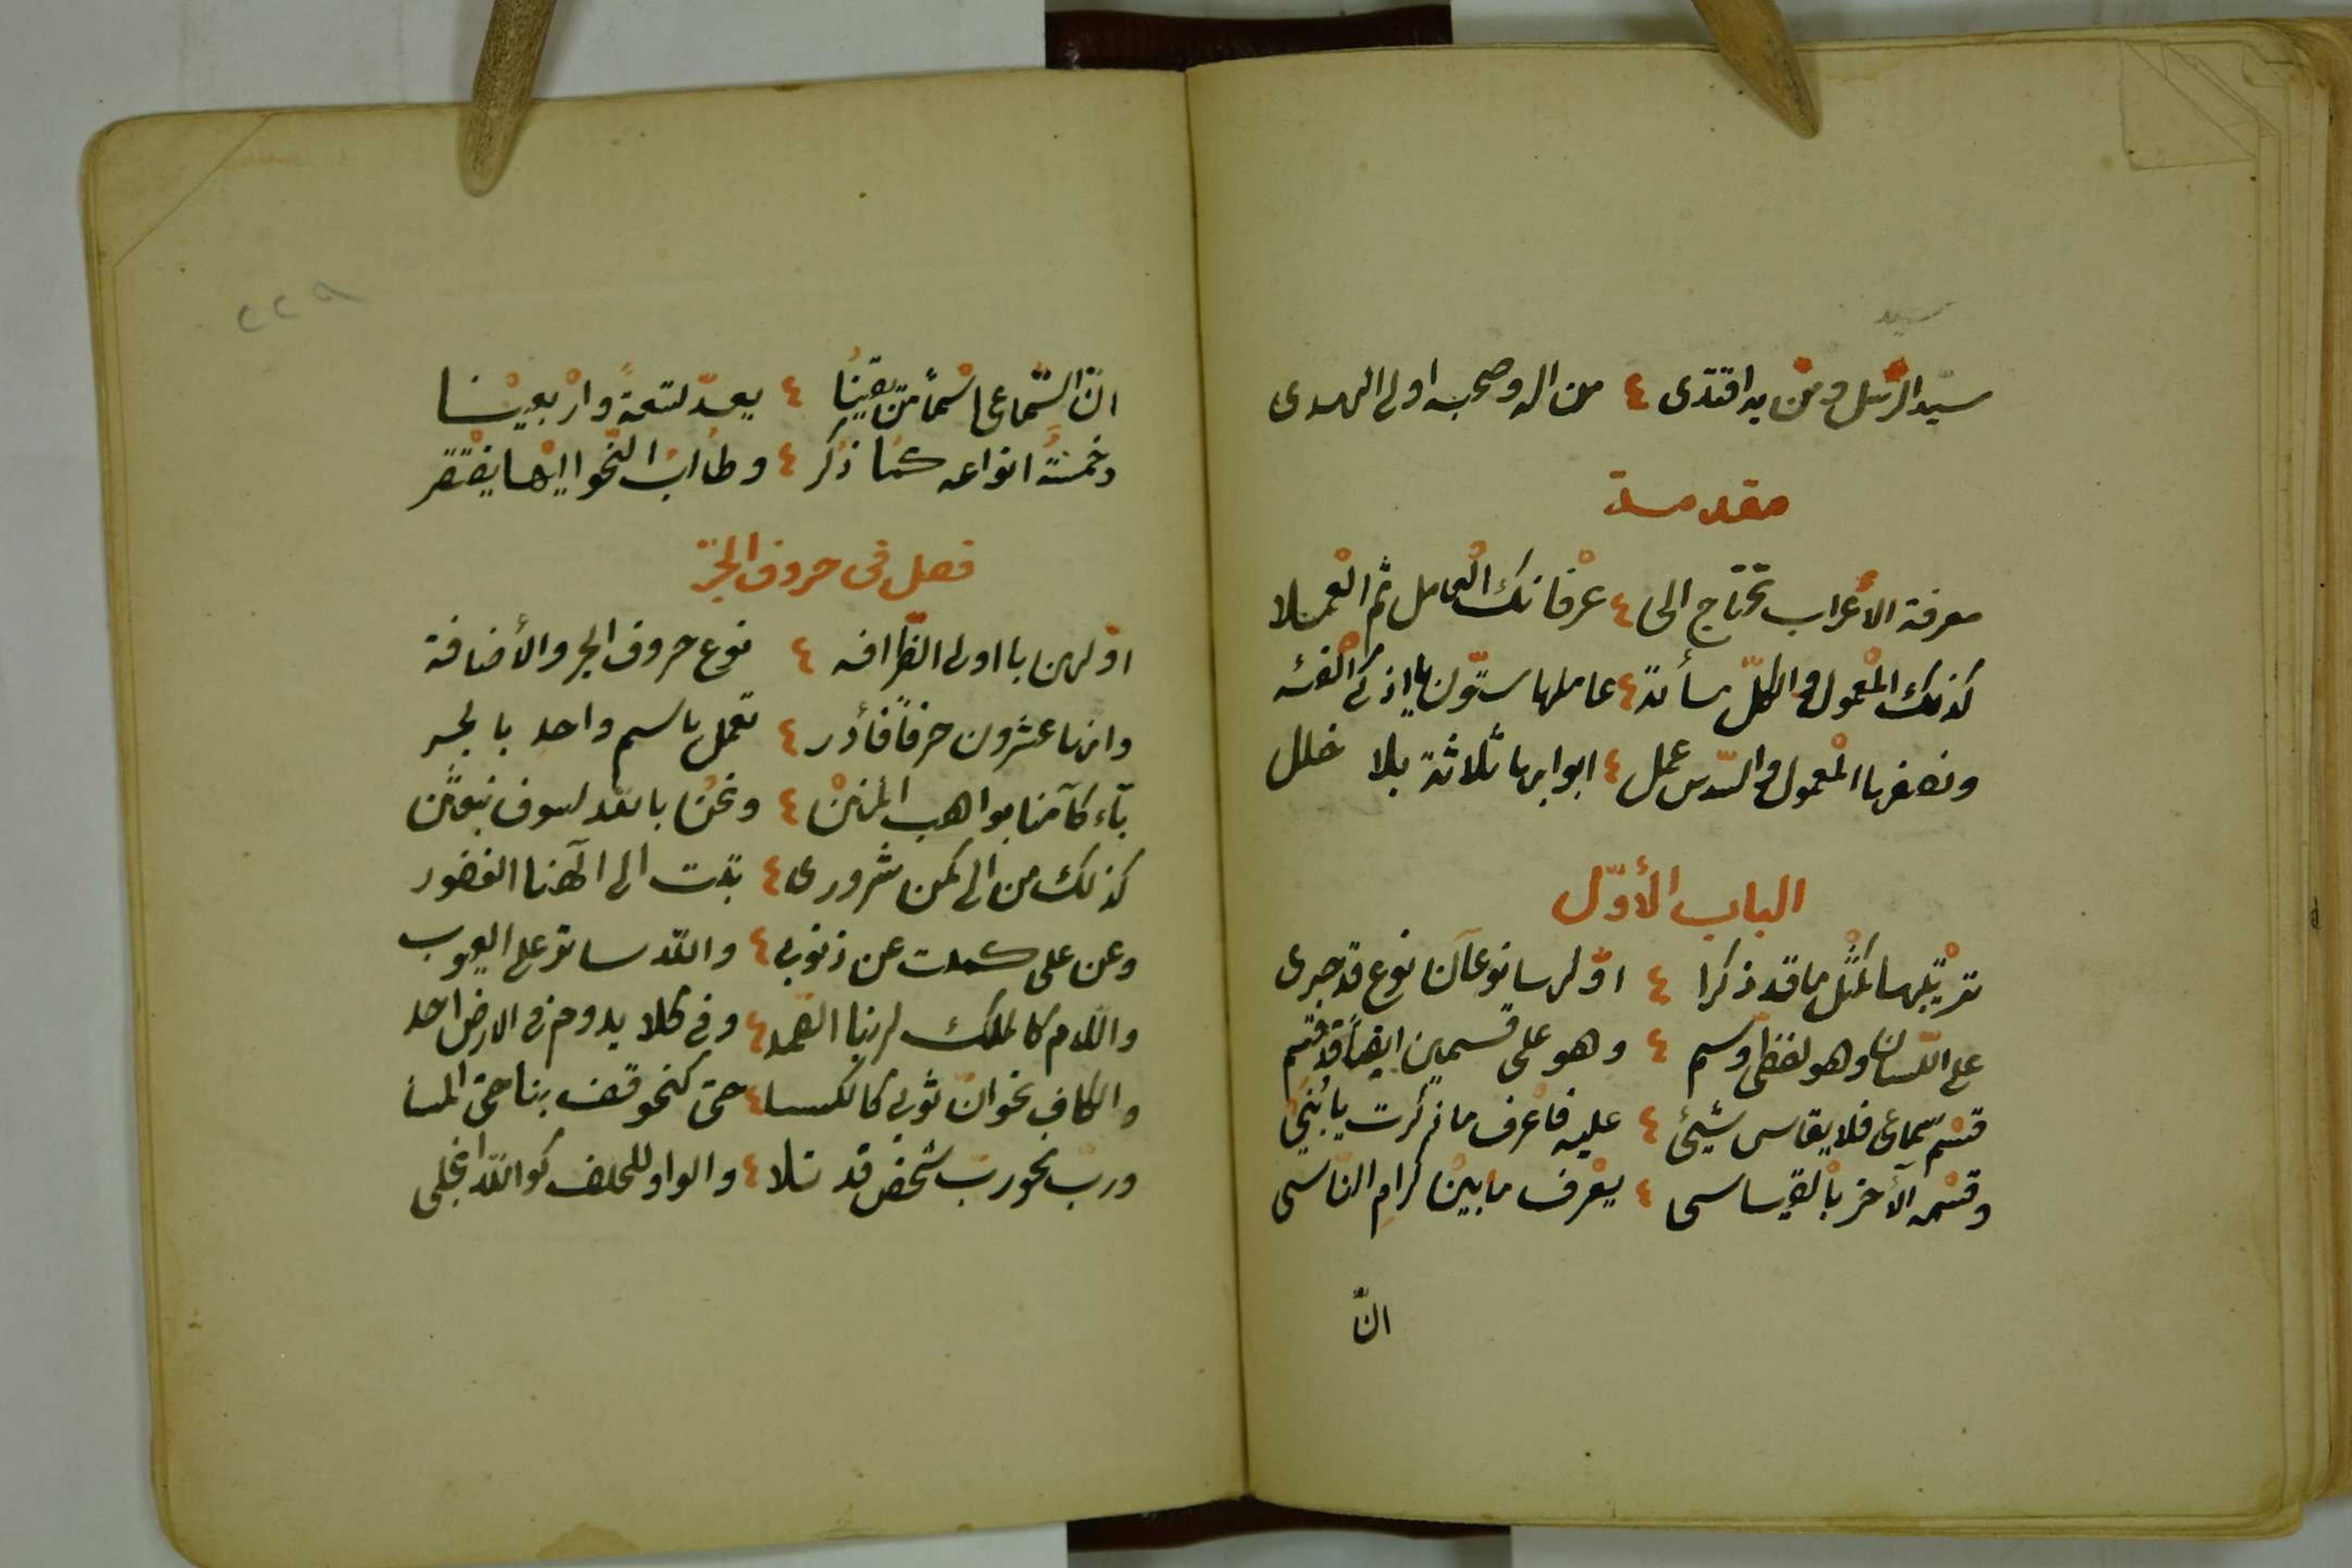 سيد
سيّد الرّسل ومن به اقتدى ٤ من اله وصحبه اولى الهدى
مقدمة
معرفة الأعراب تحتاج الى ٤ عرفانك العامل ثم العملا
كذلك المعمول والكلّ مأة ٤ عاملها ستّون يا ذكى الفئه
ونصفها المعمول والسّدس عمل ٤ ابوابها ثلاثة بلا خلل
الباب الأوّل
ترتيبها كمثل ما قد ذكرا ٤ اوّلها نوعان نوع قد جرى
على اللّسان وهو لفظى وسم ٤ وهو على قسمين ايضاً قد قسم
قسم سماعى فلا يقاس شيئ ٤ عليه فاعرف ما ذكرت يا بنىّ
وقسمه الآخر بالقياسى ٤ يعرف ما بين كرام النّاسى
انّ
٢٢٩
انّ السّماعى اسْماً من يقيناً ٤ يعدّ لتسعة واربعينا
وخمسة انواعه كما ذكر ٤ وطالب النّحو اليها يفتقر
فصل فى حروف الجرّ
اوّلهن يا اولى الظّرافه ٤ نوع حروف الجر والأضافة
وانها عشرون حرفاً فأدر ٤ تعمل باسم واحد بالجر
بآء كآمنا بواهب المنن ٤ ونحن بالله لسوف نبعثن
كذلك من الى كمن شرورى ٤ تبت الى الهنا الغفور
وعن على كمت عن ذنوبى ٤ والله ساتر على العيوب
واللام كالملك لربنا الصّمد ٤ وفى كلا يدوم فى الارض احد
والكاف نحو انّ ثوبى كالكسا ٤ حتى كنحو قف بنا حتى المسا
وربّ نحو ربّ شخص قد تلا ٤ والواو للحلف كو الله انجلى